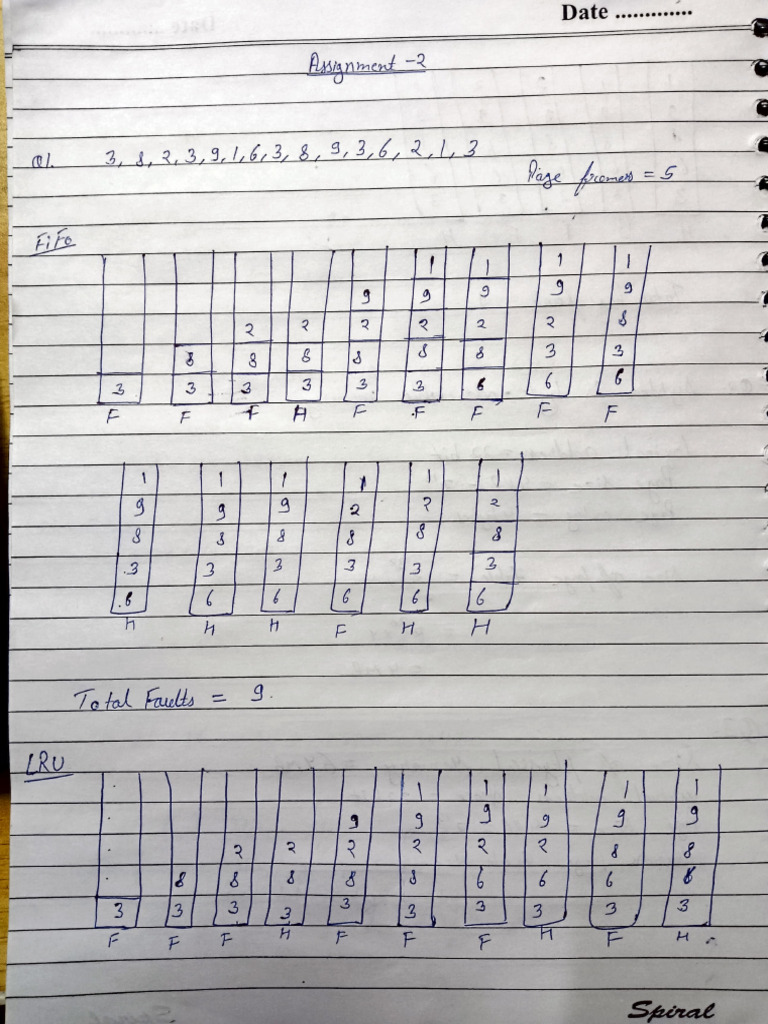 Date .............
Assignment -2
Q1. 3, 8, 2, 3, 9, 1, 6, 3, 8, 9, 3, 6, 2, 1, 3
Page frames = 5
FiFo
1 1 1 1
9 9 9 9 9
2 2 2 2 2 2 8
8 8 8 8 8 8 3 3
3 3 3 3 3 3 6 6 6
F F F H F F F F F
1 1 1 1 1 1
9 9 9 2 2 2
8 8 8 8 8 8
3 3 3 3 3 3
6 6 6 6 6 6
H H H F H H
Total Faults = 9.
LRU
1 1 1 1 1
9 9 9 9 9 9
2 2 2 2 2 2 8 8
8 8 8 8 8 6 6 6 6
3 3 3 3 3 3 3 3 3 3
F F F H F F F H F H
Spiral